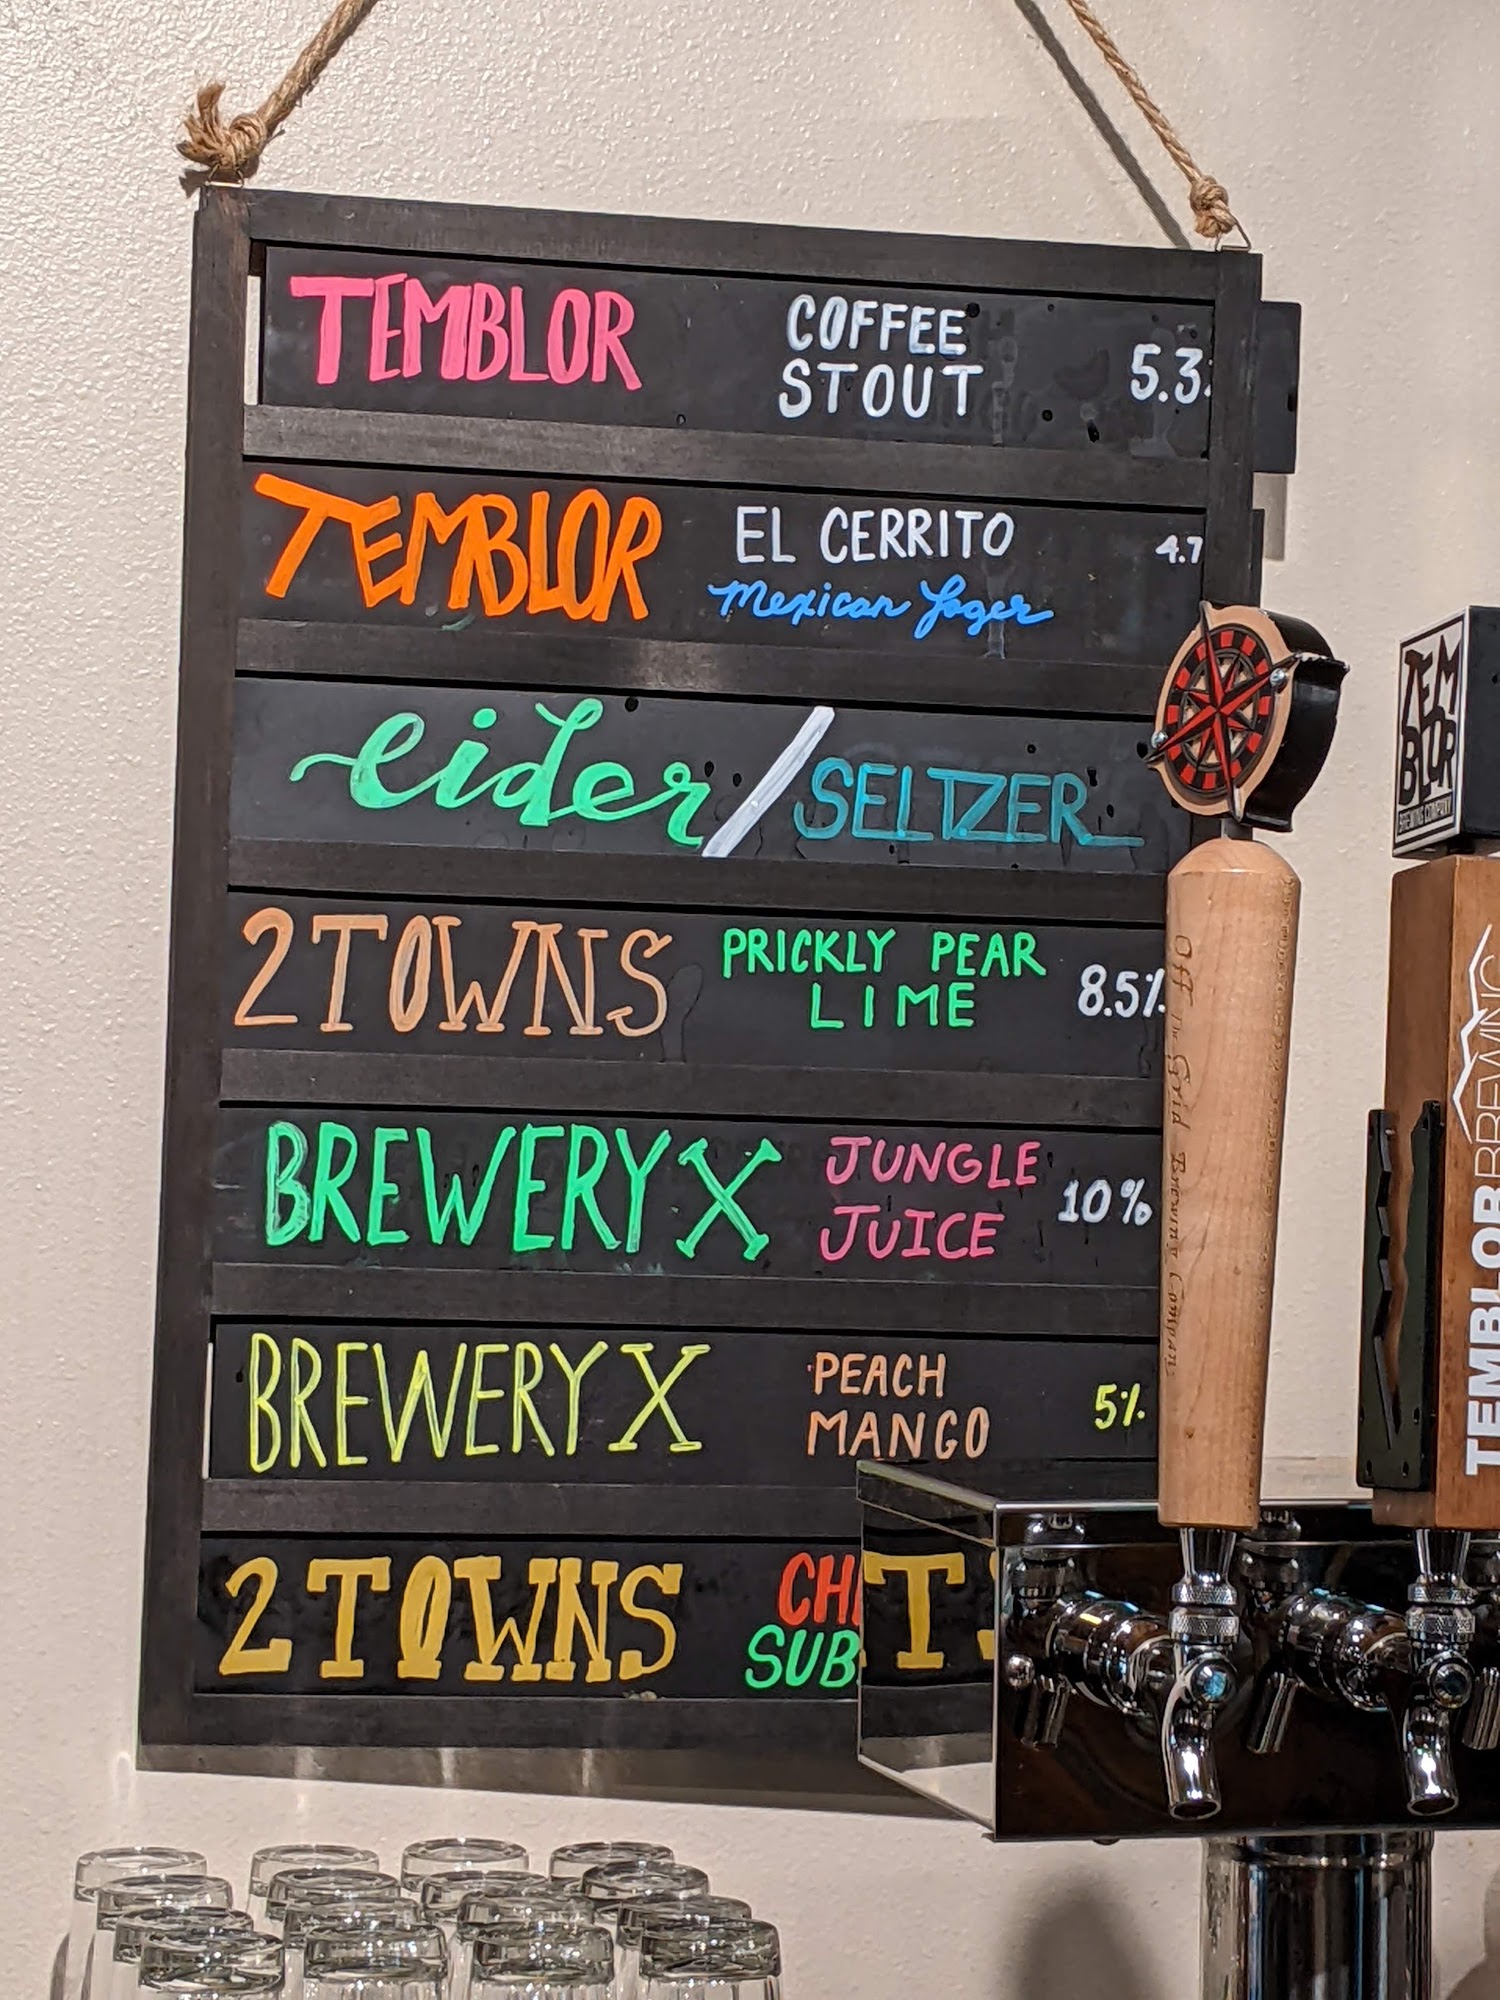 TEMBLOR COFFEE STOUT 5.3%
TEMBLOR EL CERRITO 4.7
Mexican Lager
cider/SELTZER
2 TOWNS PRICKLY PEAR LIME 8.5%
BREWERY X JUNGLE JUICE 10%
BREWERY X PEACH MANGO 5%
2 TOWNS
TEMBLOR
BREWING COMPANY
Off The Grid Brewing Company
TEMBLOR BREWING